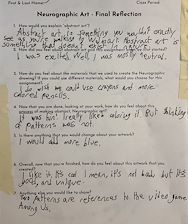 First & Last Name:
Class Period
Neurographic Art - Final Reflection
1. How would you explain "abstract art"?
Abstract art is something you wouldn't exactly
see as you're walking to Walmart. Abstract art is
something that doesn't exist
I was excited. Well, I was mostly neutral.
3. How do you feel about the materials that we used to create the Neurographic
drawing? If you could use different materials, what would you choose for this
assignment?
I do wish we could use crayons and more
colored pencils.
4. Now that you are done, looking at your work, how do you feel about this
process of making abstract, Neurographic art?
It was fun! I really like coloring it. But thinking
of patterns was not.
5. Is there anything that you would change about your artwork?
I would add more blue.
6. Overall, now that you're finished, how do you feel about this artwork that you
created?
I like it. It's cool. I mean, it's not bad, but it's
good, and unique
7. Anything else you would like to share?
Two patterns are references to the video game
Among Us.